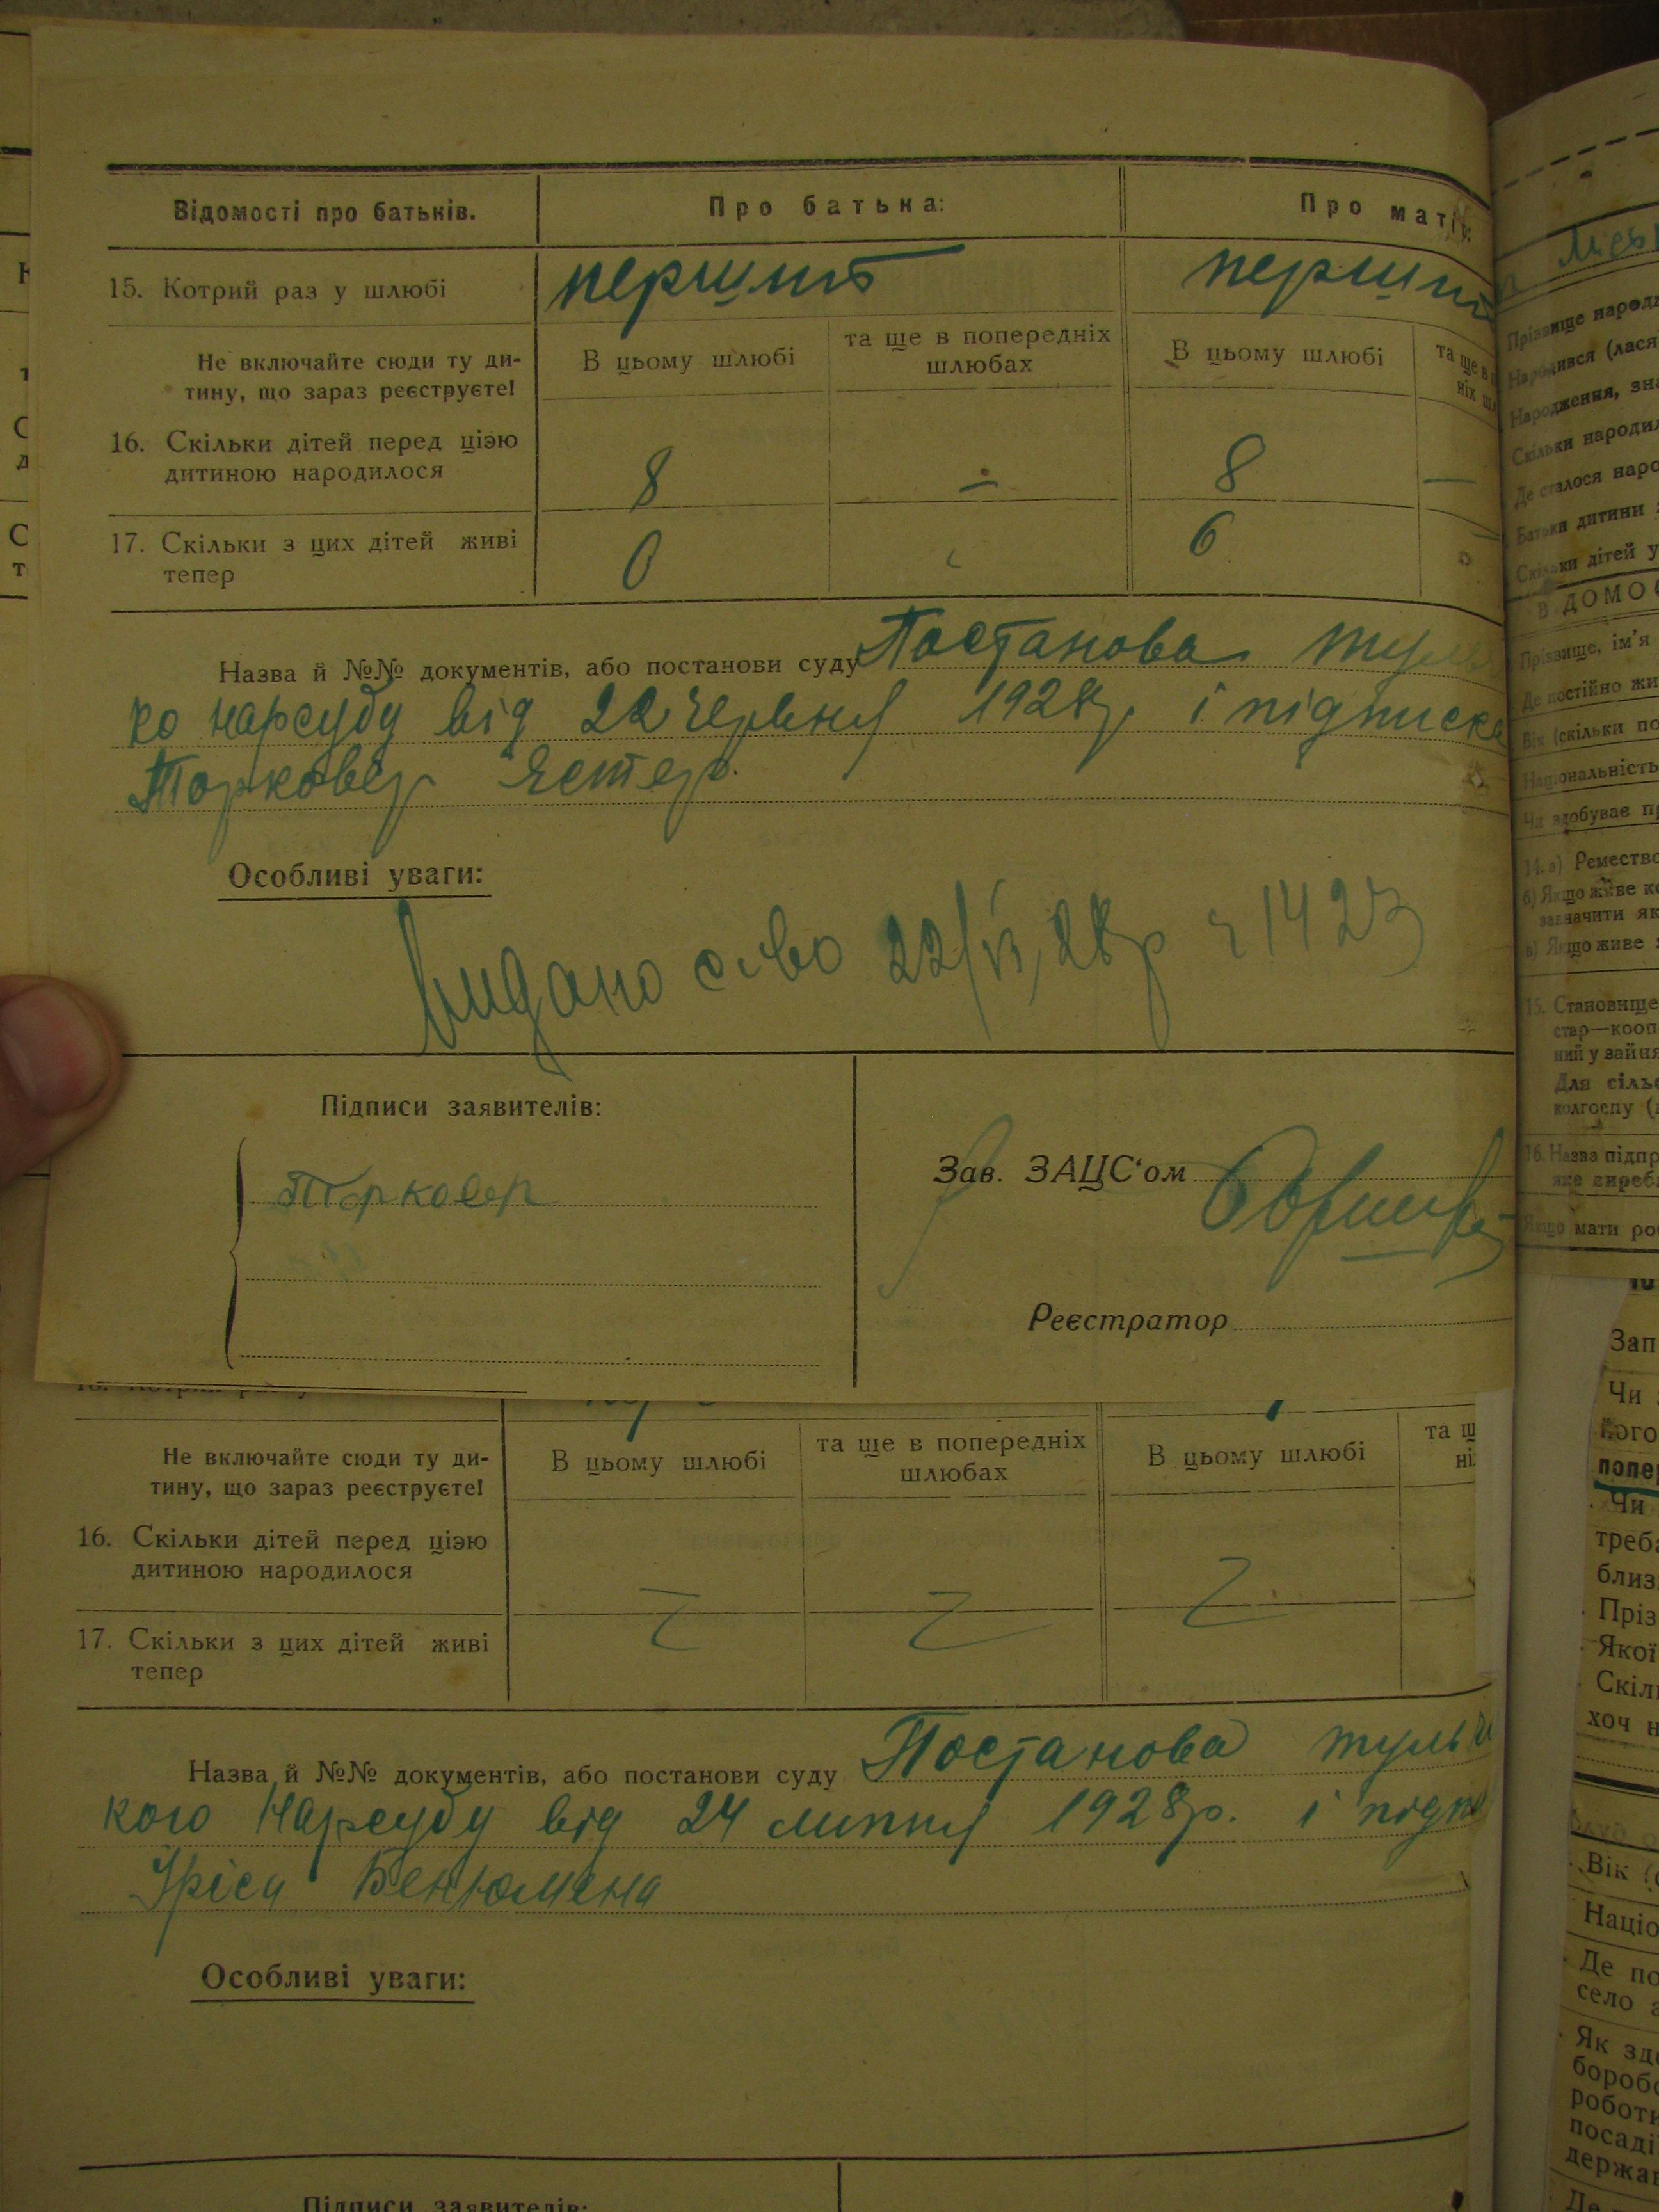 Відомості про батьків.
Про батька:
Про матір:
15. Котрий раз у шлюбі
перший
перший
Не включайте сюди ту ди-
тину, що зараз реєструєте!
В цьому шлюбі
та ще в попередніх
шлюбах
В цьому шлюбі
та ще в
ніх шл
16. Скільки дітей перед цією
дитиною народилося
8
—
8
—
17. Скільки з цих дітей живі
тепер
6
Назва й №№ документів, або постанови суду Постанова
ко нарсуду від 22 червня 1928р. і підписка
Торковер Естер.
Особливі уваги:
Видано с-во 22/VI, 28р ч 1423
Підписи заявителів:
Торковер
Зав. ЗАЦС‘ом
Реєстратор
Не включайте сюди ту ди-
тину, що зараз реєструєте!
В цьому шлюбі
та ще в попередніх
шлюбах
В цьому шлюбі
та щ
ні
16. Скільки дітей перед цією
дитиною народилося
17. Скільки з цих дітей живі
тепер
Назва й №№ документів, або постанови суду Постанова тульч
кого Нарсуду від 24 липня 1928р. і підп
Уріса Бенюмена
Особливі уваги:
Підписи заявителів:
Прізвище народ
Народився (лася
Народження, зн
Скільки народил
Де сталося наро
Батьки дитини
Скільки дітей у
ВІДОМОС
Прізвище, ім'я
Де постійно жи
Вік (скільки по
Національність
Чи здобуває п
14. а) Ремество
б) Якщо живе к
зазначити як
в) Якщо живе
15. Становище
стар—кооп
ний у зайня
Для сіль
колгоспу (
16. Назва підпр
яке вироб
Якщо мати ро
Зап
Чи
кого
попе
Чи
треба
близ
Пріз
Якої
Скіл
хоч н
Вік
Націо
Де по
село
Як зд
бороб
робот
посаді
держа